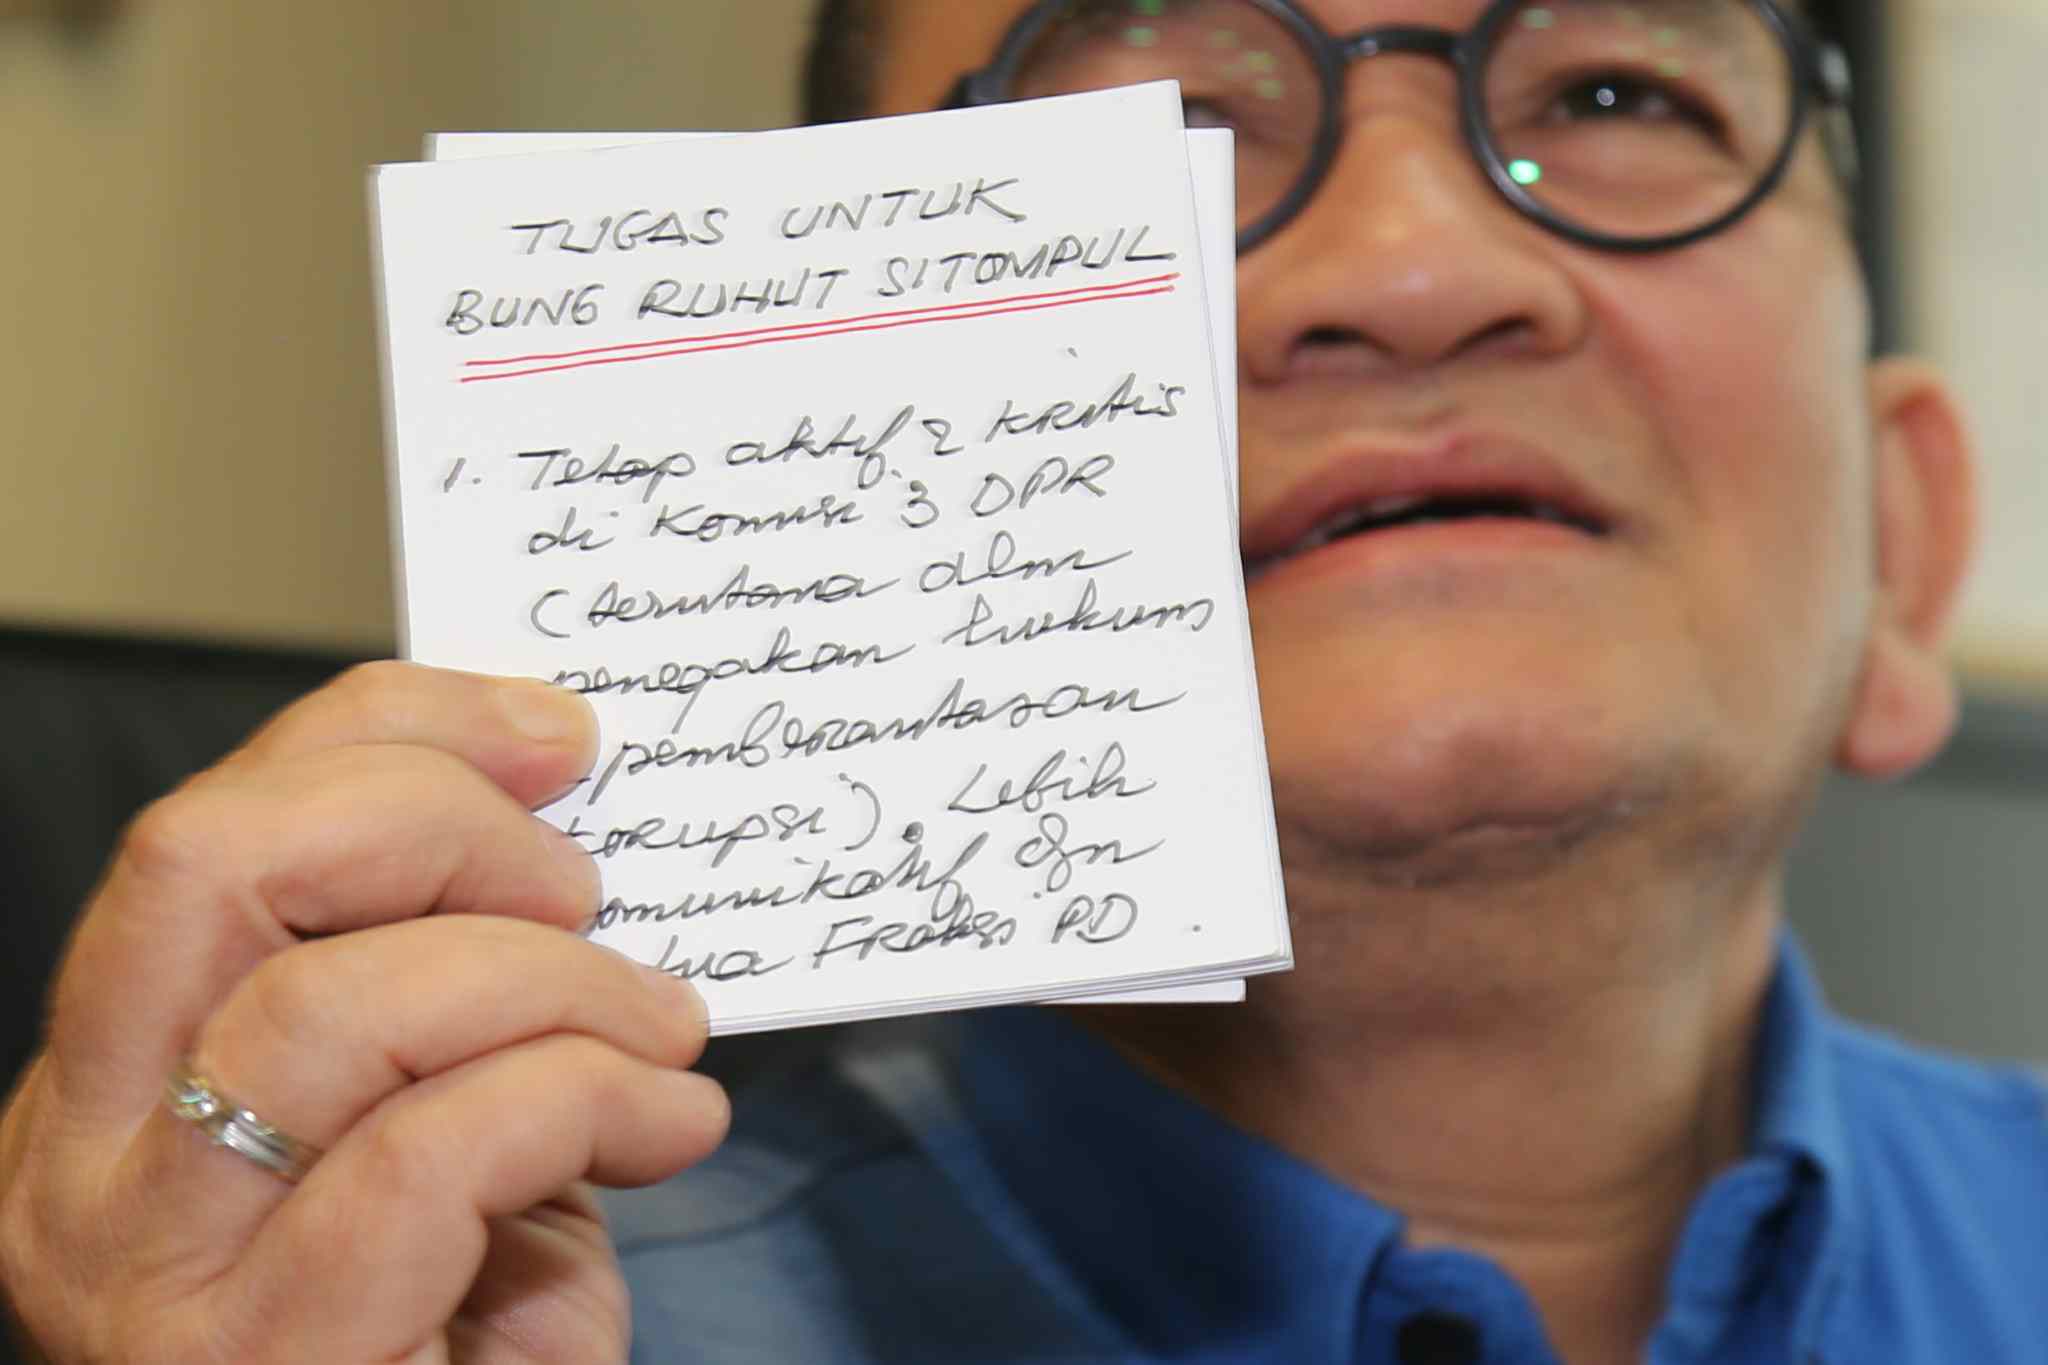 TUGAS UNTUK
BUNG RUHUT SITOMPUL
1. Tetap aktif & kritis
di Komisi 3 DPR
(terutama dlm
penegakan hukum
pemberantasan
korupsi). Lebih
omunikatif dgn
tua Fraksi PD.